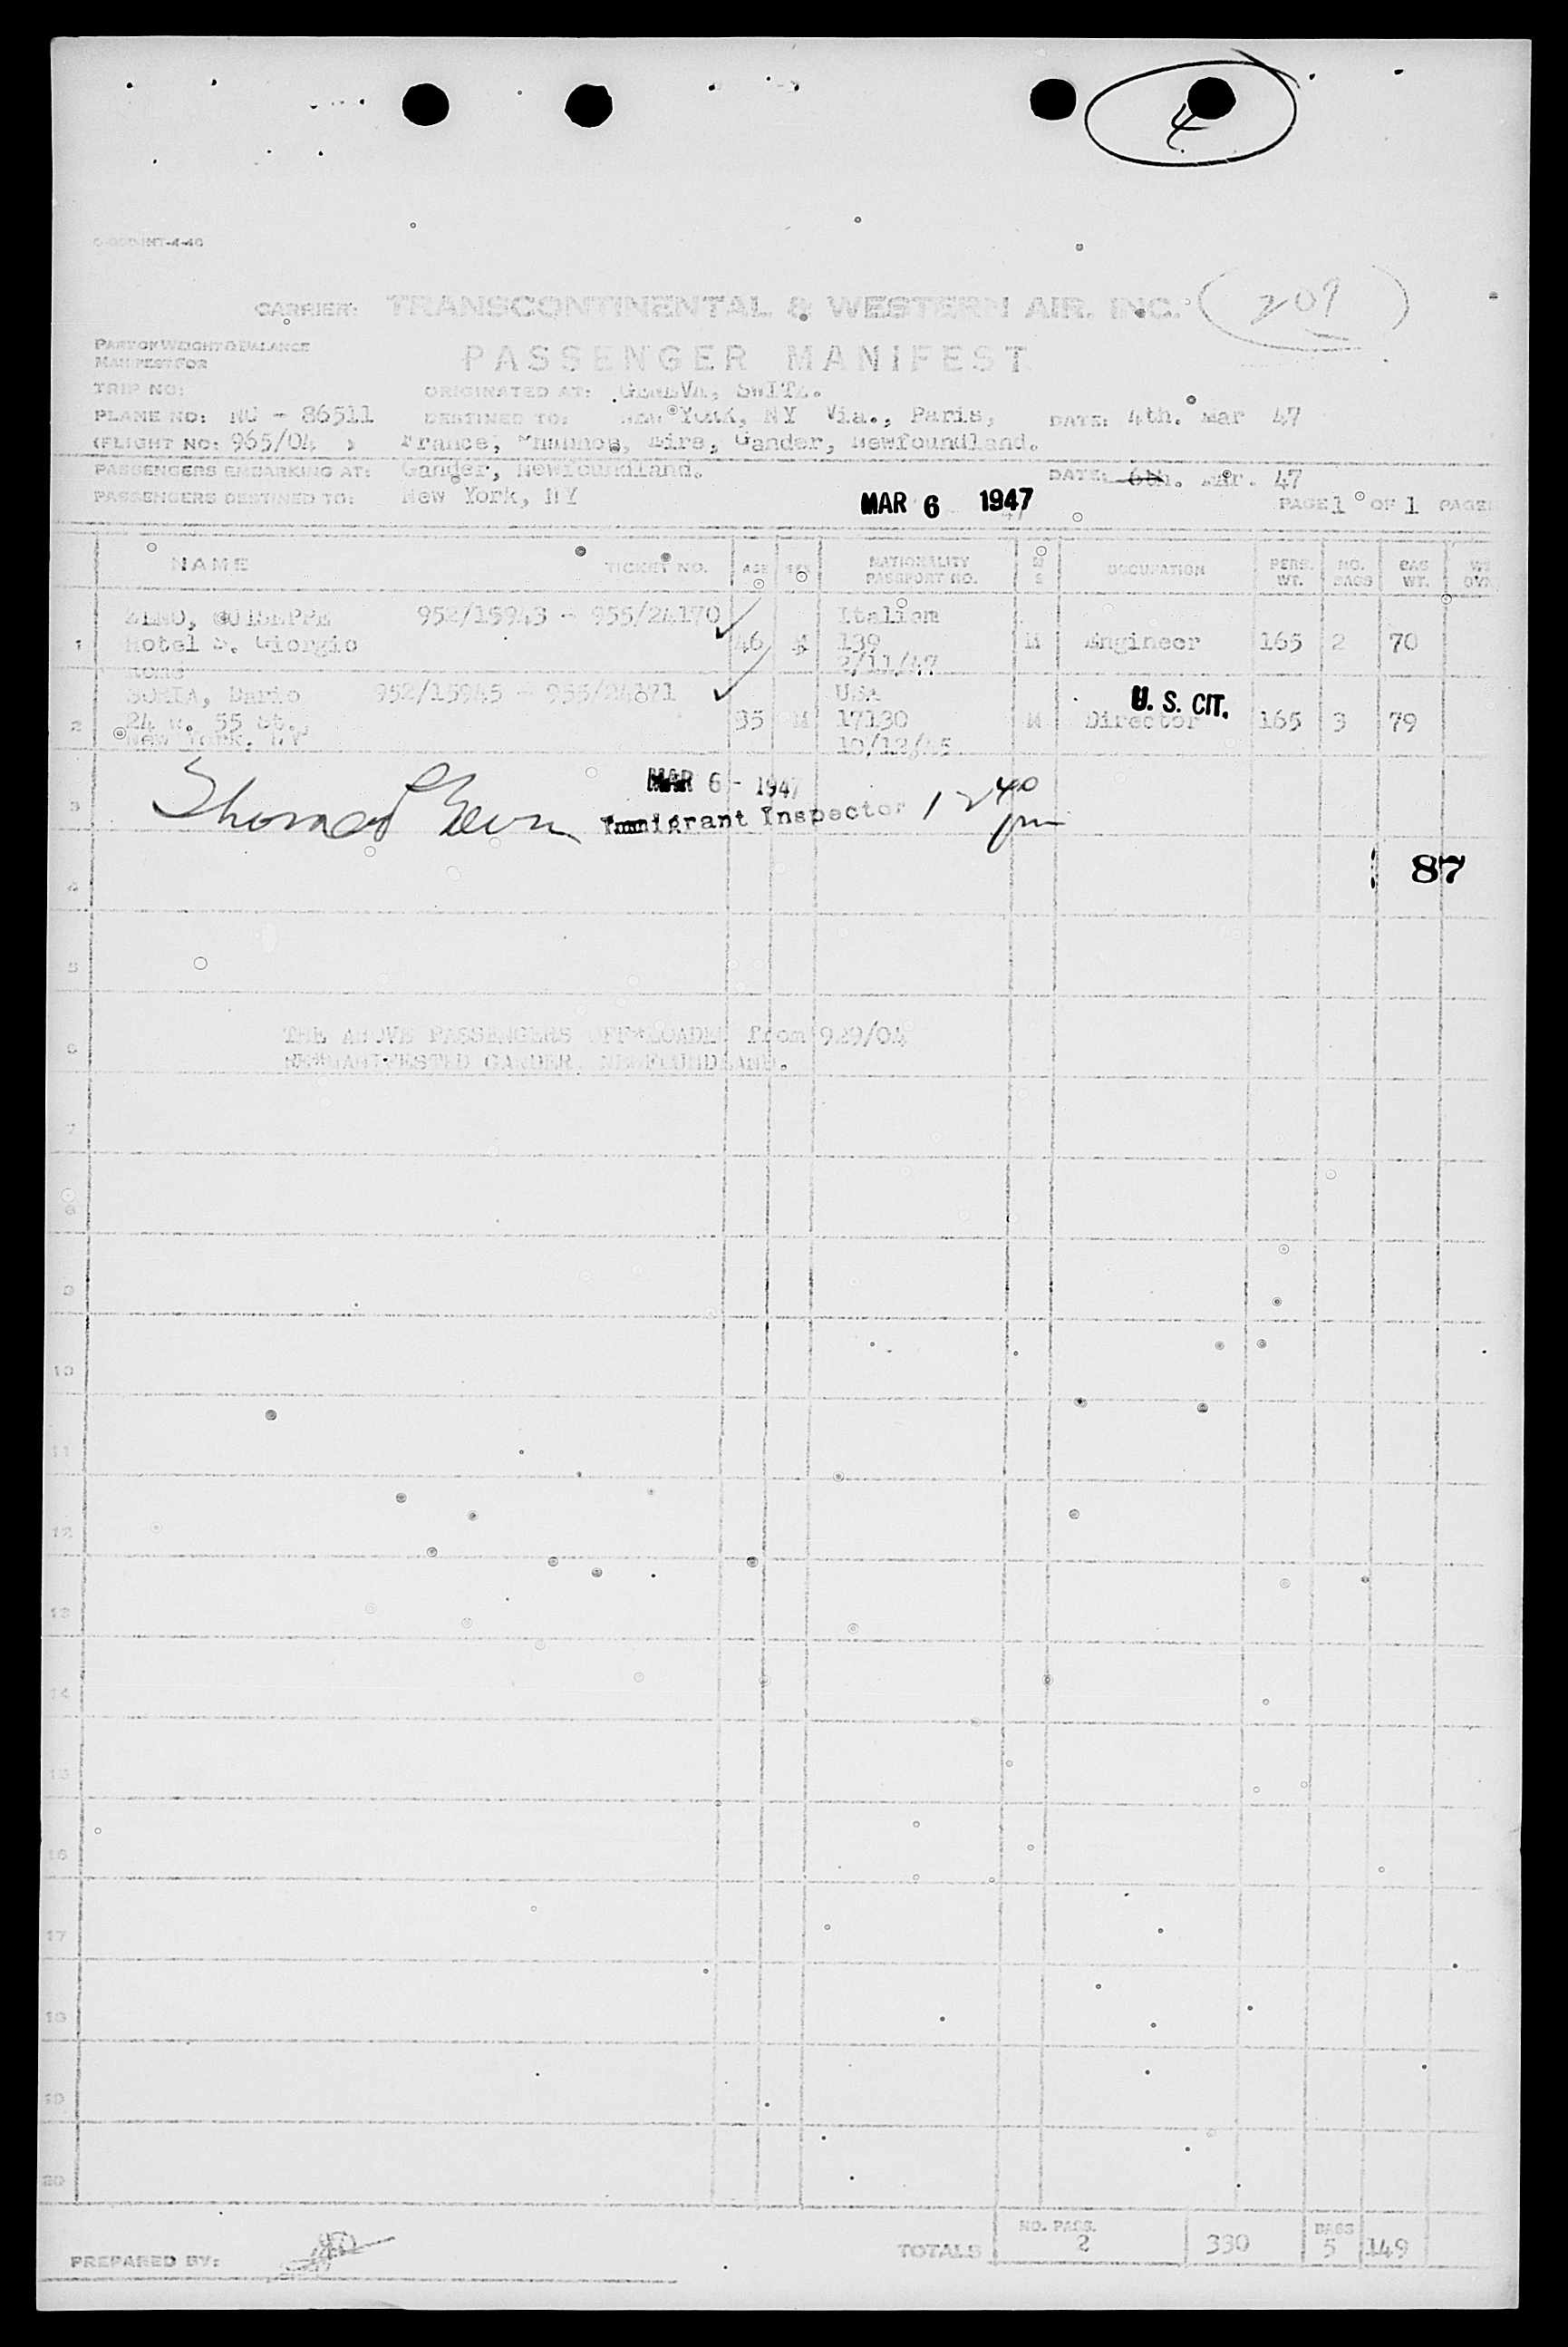 4
CARRIER: TRANSCONTINENTAL & WESTERN AIR. INC. 209
PART OF WEIGHT & BALANCE
MANIFEST FOR
PASSENGER MANIFEST
TRIP NO: ORIGINATED AT: GENEVA, SWITZ.
PLANE NO: NC - 86511 DESTINED TO: NEW YORK, NY Via., Paris, DATE: 4th. Mar 47
(FLIGHT NO: 965/04 ) France, Eire, Gander, Newfoundland.
PASSENGERS EMBARKING AT: Gander, Newfoundland. DATE: 6th. Mar. 47
PASSENGERS DESTINED TO: New York, NY MAR 6 1947 PAGE 1 OF 1 PAGE
NAME TICKET NO. AGE SEX NATIONALITY PASSPORT NO. M S OCCUPATION PERS. WT. NO. BAGS BAG WT.
952/15943 - 955/24170 Italian
1 Hotel S. Giorgio 46 M 139 M Engineer 165 2 70
ROME 2/11/47
SORIA, Dario 952/15945 - 955/24171 USA U. S. CIT.
2 24 W. 55 St., 35 M 17130 M Director 165 3 79
New York, NY 10/12/45
3 MAR 6 - 1947
Immigrant Inspector 12 40 pm
87
4
5
THE ABOVE PASSENGERS OFF-LOADED from 929/04
6 GANDER, NEWFOUNDLAND.
7
8
9
10
11
12
13
14
15
16
17
18
19
20
PREPARED BY: TOTALS NO. PASS. 2 330 BAGS 5 149